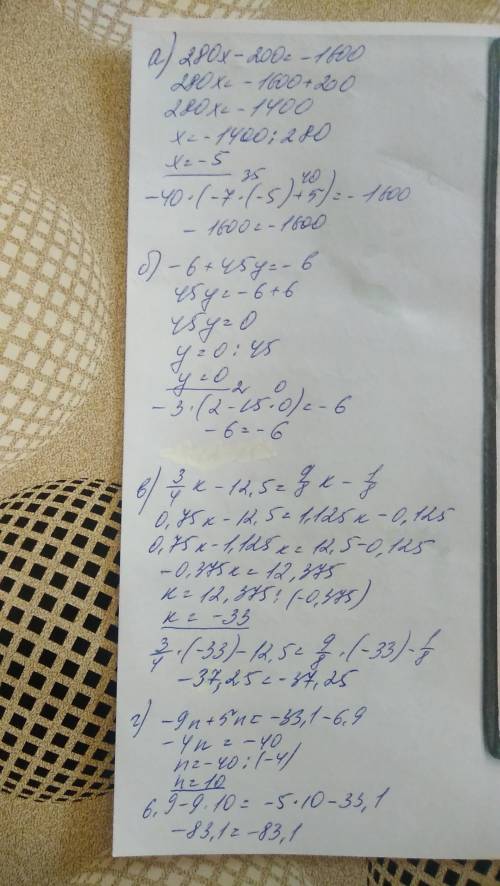 а) 280х - 200 = -1600
280х = -1600 + 200
280х = -1400
х = -1400 : 280
х = -5
35 40
-40 · (-7 · (-5) + 5) = -1600
-1600 = -1600
б) -6 + 45у = -6
45у = -6 + 6
45у = 0
у = 0 : 45
у = 0
2 0
-3 · (2 - 15 · 0) = -6
-6 = -6
в) 3/4 к - 12,5 = 9/8 к - 1/8
0,75к - 12,5 = 1,125к - 0,125
0,75к - 1,125к = 12,5 - 0,125
-0,375к = 12,375
к = 12,375 : (-0,375)
к = -33
3/4 · (-33) - 12,5 = 9/8 · (-33) - 1/8
-37,25 = -37,25
г) -9n + 5n = -33,1 - 6,9
-4n = -40
n = -40 : (-4)
n = 10
6,9 - 9 · 10 = -5 · 10 - 33,1
-83,1 = -83,1